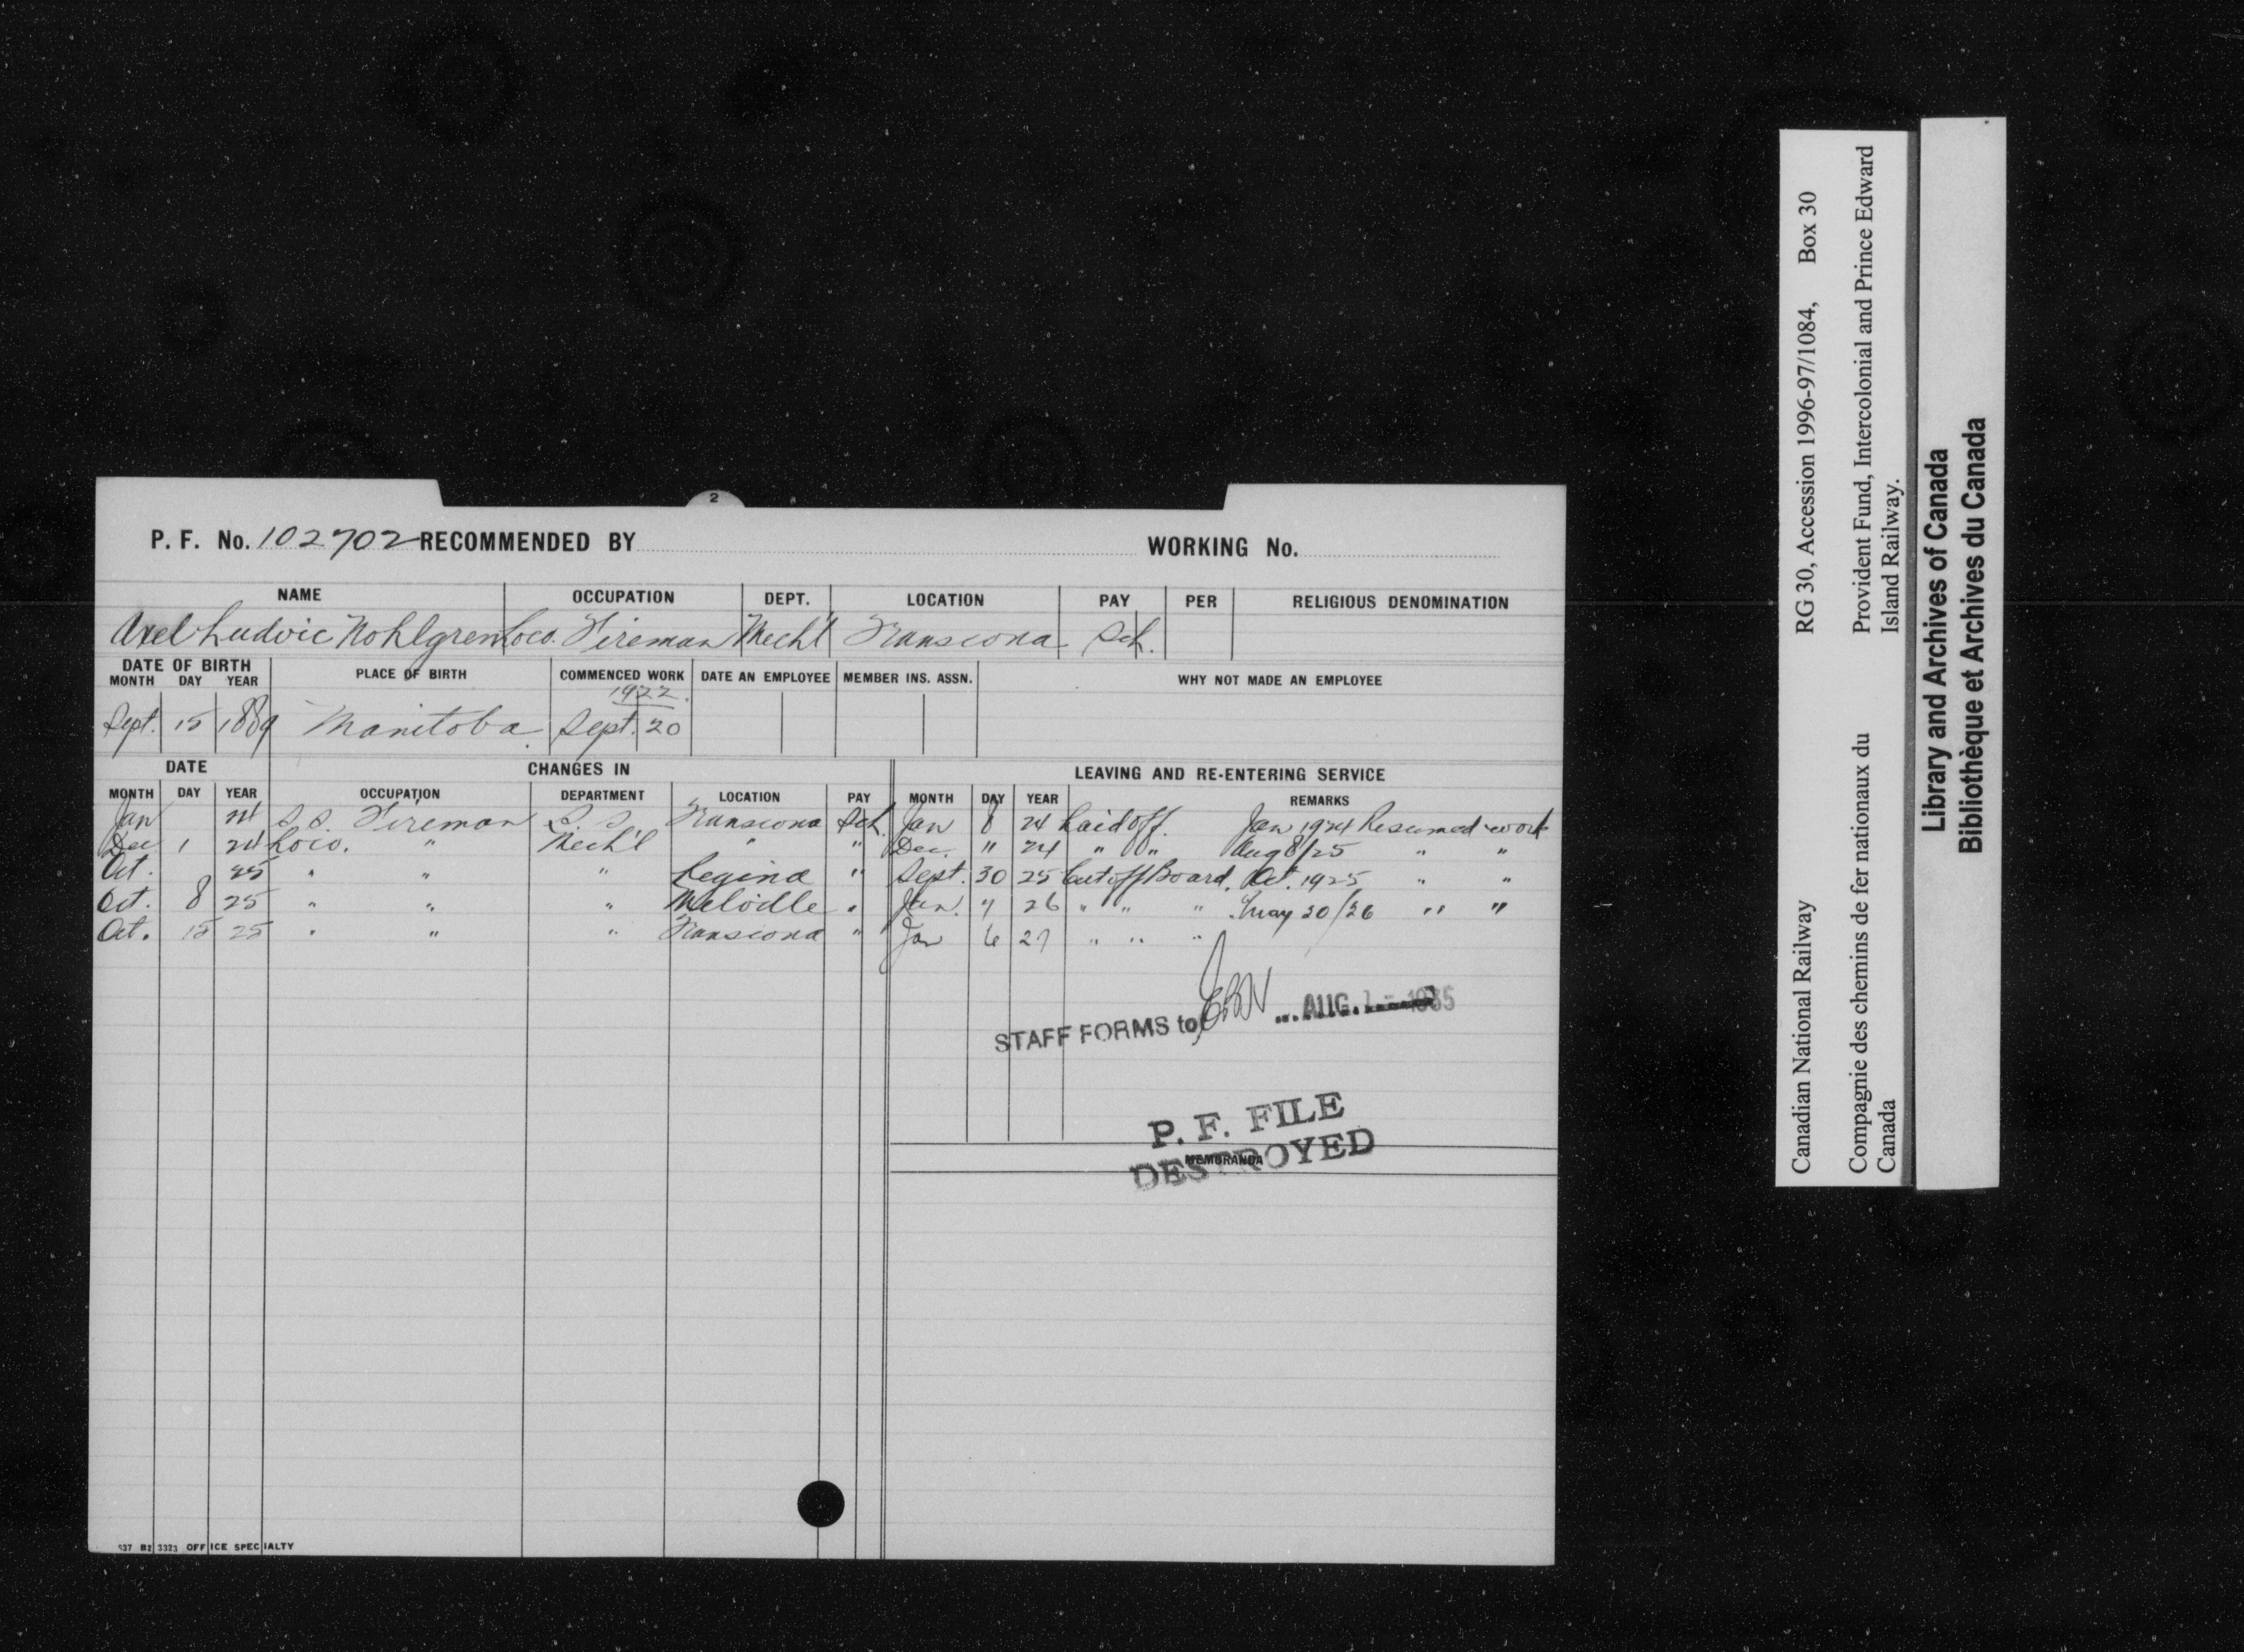 2
P. F. No. 102702 RECOMMENDED BY WORKING No.
NAME OCCUPATION DEPT. LOCATION PAY PER RELIGIOUS DENOMINATION
Axel Ludvic Nohlgren Loco. Fireman Mech'l Transcona Sch.
DATE OF BIRTH PLACE OF BIRTH COMMENCED WORK DATE AN EMPLOYEE MEMBER INS. ASSN. WHY NOT MADE AN EMPLOYEE
MONTH DAY YEAR
1922
Sept. 15 1889 Manitoba Sept. 20
DATE CHANGES IN LEAVING AND RE-ENTERING SERVICE
MONTH DAY YEAR OCCUPATION DEPARTMENT LOCATION PAY MONTH DAY YEAR REMARKS
Jan 24 S.S. Fireman S.S. Transcona Sch. Jan 8 24 Laid off. Jan 1924 Resumed work
Dec 1 24 Loco. " Mech'l " " Dec. " 24 " " Aug 8/25 " "
Oct. 25 " " " Regina " Sept. 30 25 Cut off Board. Oct. 1925 " "
Oct. 8 25 " " " Melville " Jan. 7 26 " " " May 30/26 " "
Oct. 15 25 " " " Transcona " Jan 6 27 " " "
STAFF FORMS to AUG. 1 1935
P. F. FILE
DESTROYED
MEMORANDA
537 B2 3323 OFFICE SPECIALTY
Canadian National Railway RG 30, Accession 1996-97/1084, Box 30
Compagnie des chemins de fer nationaux du Provident Fund, Intercolonial and Prince Edward
Canada Island Railway.
Library and Archives of Canada
Bibliothèque et Archives du Canada